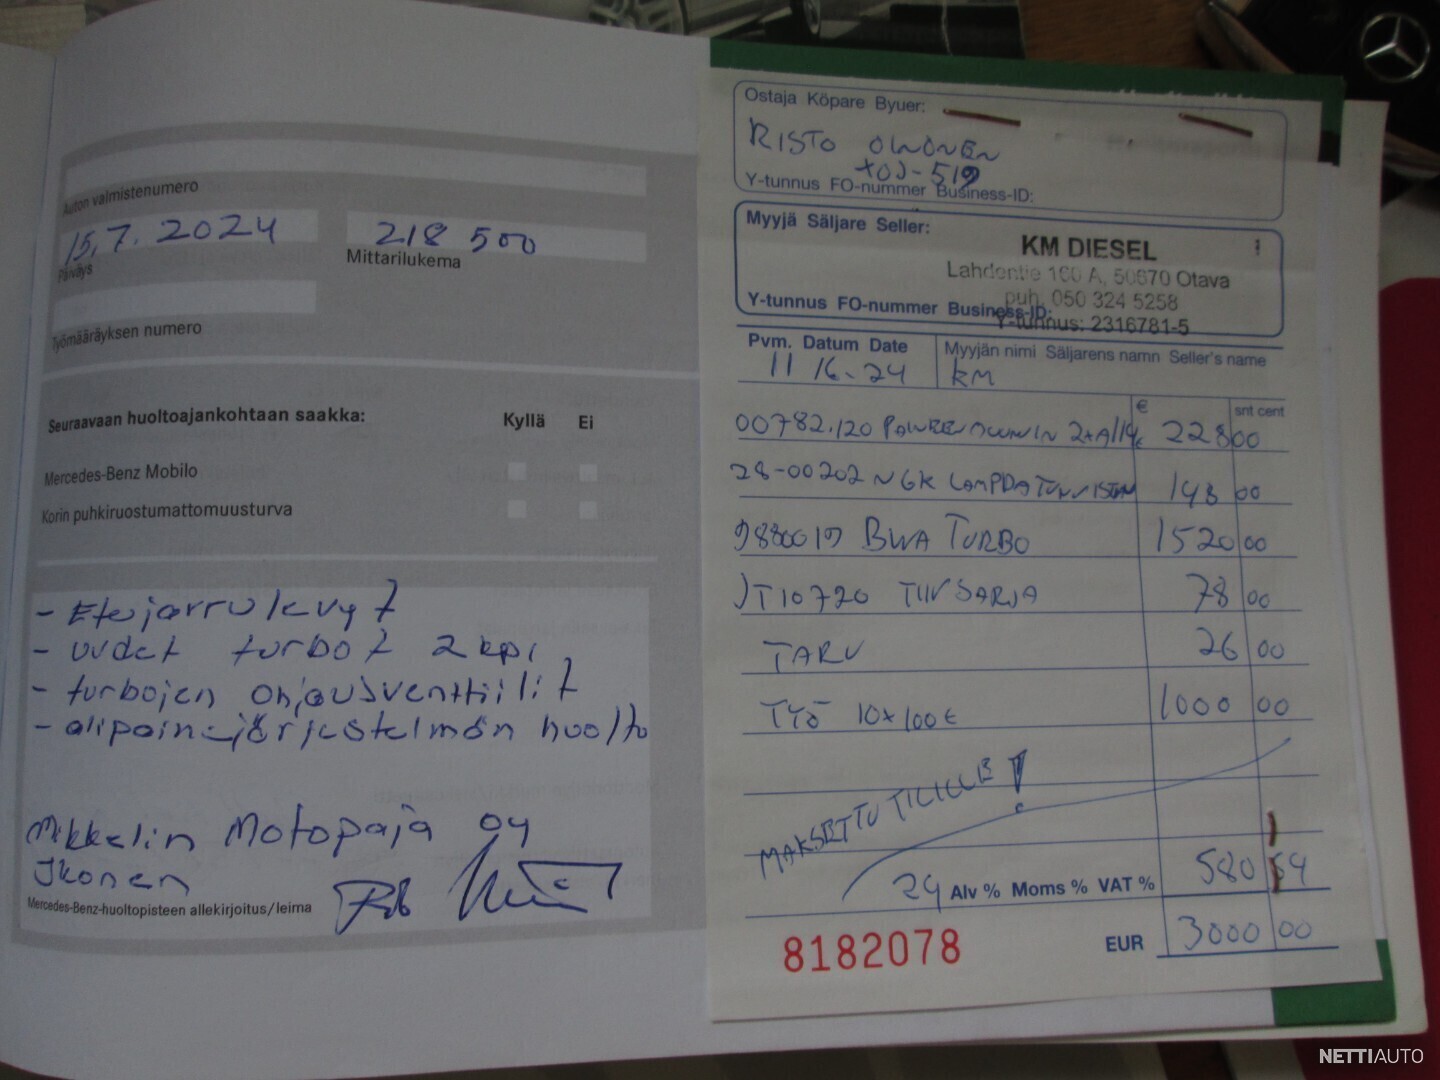 Auton valmistenumero
15.7.2024
218 500
Päiväys
Mittarilukema
Työmääräyksen numero
Seuraavaan huoltoajankohtaan saakka:
Kyllä Ei
Mercedes-Benz Mobilo
Korin puhkiruostumattomuusturva
- Etujarrulevyt
- uudet turbot 2 kpl
- turbojen ohjausventtiilit
- alipainejärjestelmän huolto
Mikkelin Motopaja oy
Ikonen
Mercedes-Benz-huoltopisteen allekirjoitus/leima
Ostaja Köpare Byuer:
RISTO
Y-tunnus FO-nummer Business-ID:
Myyjä Säljare Seller:
KM DIESEL
Lahdentie 160 A, 50670 Otava
puh. 050 324 5258
Y-tunnus FO-nummer Business-ID:
Y-tunnus: 2316781-5
Pvm. Datum Date
Myyjän nimi Säljarens namn Seller's name
11/6-24
KM
€ snt cent
00782.120 228 00
28-00202 NGK 148 00
9880019 BWA TURBO 1520 00
JT10720 TIIVSARJA 78 00
TARV 26 00
TYÖ 10x100€ 1000 00
MAKSETTU TILILLE!
24 Alv % Moms % VAT % 580 54
8182078
EUR 3000 00
NETTIAUTO